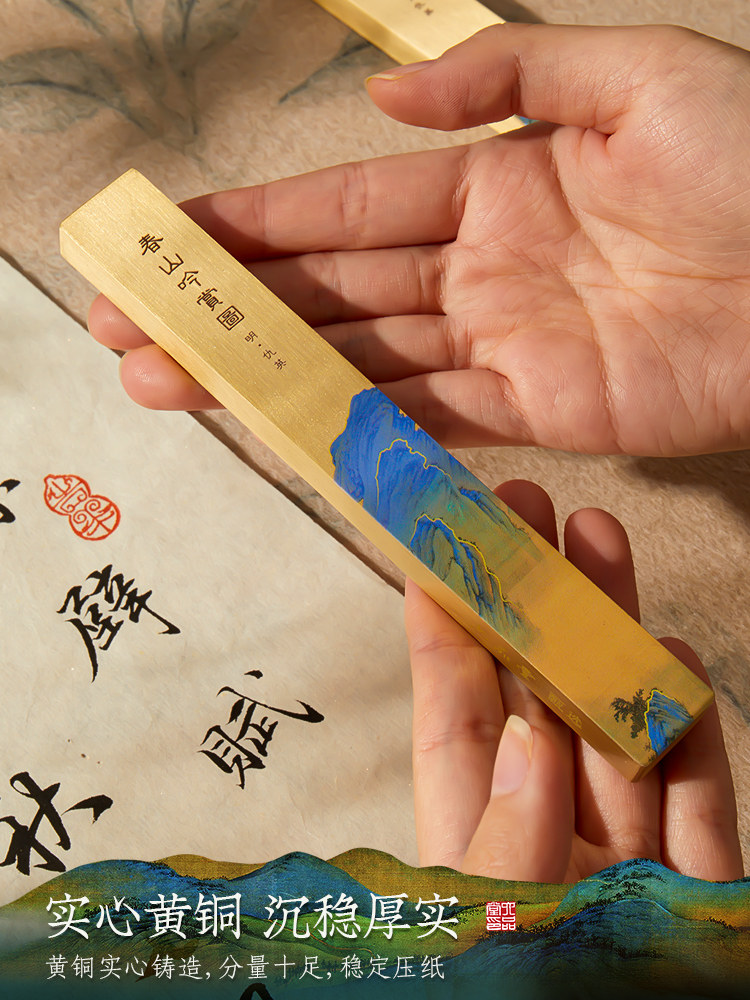 春山吟賞圖
明·仇英
壁
賦
秋
实心黄铜 沉稳厚实
黄铜实心铸造,分量十足,稳定压纸